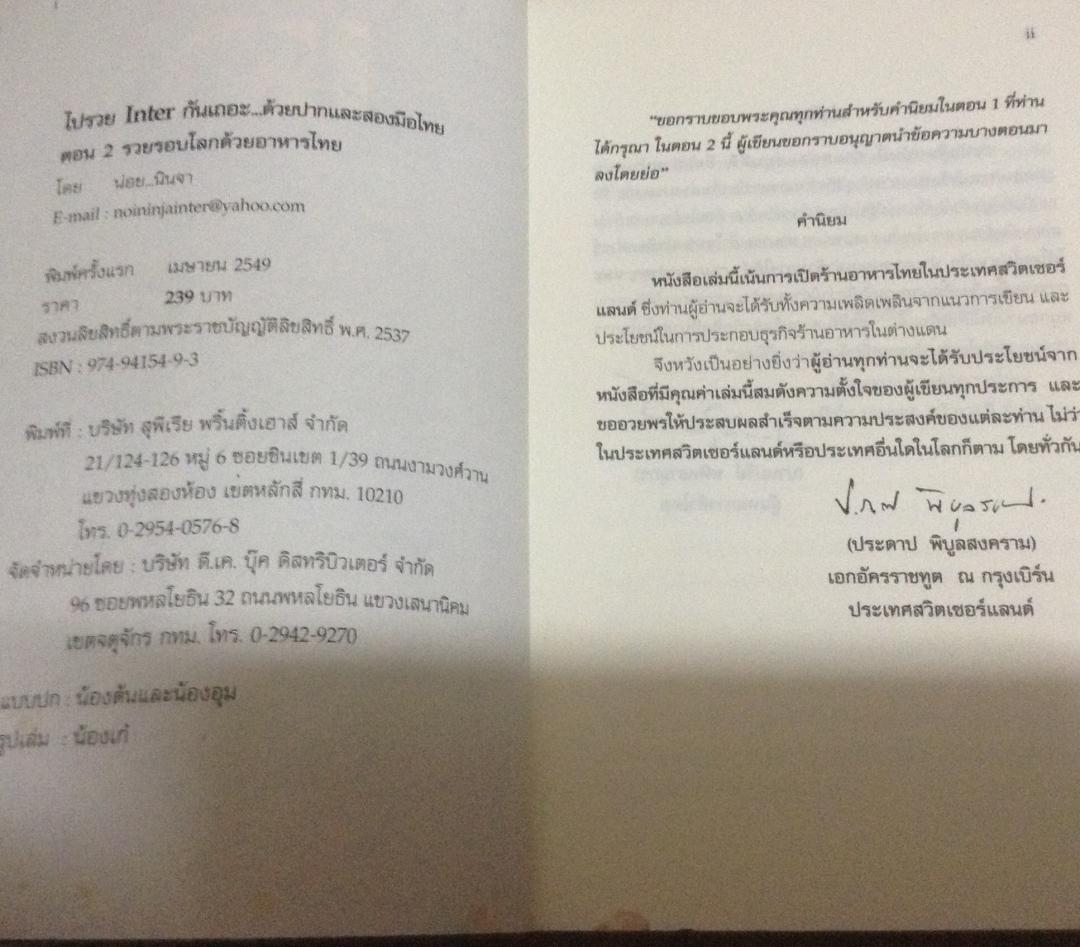 ไปรวย Inter กันเถอะ...ด้วยปากและสองมือไทย
ตอน 2 รวยรอบโลกด้วยอาหารไทย
โดย น่อย...นินจา
E-mail : noininjainter@yahoo.com
พิมพ์ครั้งแรก เมษายน 2549
ราคา 239 บาท
สงวนลิขสิทธิ์ตามพระราชบัญญัติลิขสิทธิ์ พ.ศ. 2537
ISBN : 974-94154-9-3
พิมพ์ที่ : บริษัท สุพีเรีย พริ้นติ้งเฮาส์ จำกัด
21/124-126 หมู่ 6 ซอยชินเขต 1/39 ถนนงามวงศ์วาน
แขวงทุ่งสองห้อง เขตหลักสี่ กทม. 10210
โทร. 0-2954-0576-8
จัดจำหน่ายโดย : บริษัท ดี.เค. บุ๊ค ดิสทริบิวเตอร์ จำกัด
96 ซอยพหลโยธิน 32 ถนนพหลโยธิน แขวงเสนานิคม
เขตจตุจักร กทม. โทร. 0-2942-9270
แบบปก : น้องต้นและน้องอุม
รูปเล่ม : น้องเก๋
ii
"ขอกราบขอบพระคุณทุกท่านสำหรับคำนิยมในตอน 1 ที่ท่าน
ได้กรุณา ในตอน 2 นี้ ผู้เขียนขอกราบอนุญาตนำข้อความบางตอนมา
ลงโดยย่อ"
คำนิยม
หนังสือเล่มนี้เน้นการเปิดร้านอาหารไทยในประเทศสวิตเซอร์
แลนด์ ซึ่งท่านผู้อ่านจะได้รับทั้งความเพลิดเพลินจากแนวการเขียน และ
ประโยชน์ในการประกอบธุรกิจร้านอาหารในต่างแดน
จึงหวังเป็นอย่างยิ่งว่าผู้อ่านทุกท่านจะได้รับประโยชน์จาก
หนังสือที่มีคุณค่าเล่มนี้สมดังความตั้งใจของผู้เขียนทุกประการ และ
ขออวยพรให้ประสบผลสำเร็จตามความประสงค์ของแต่ละท่าน ไม่ว่า
ในประเทศสวิตเซอร์แลนด์หรือประเทศอื่นใดในโลกก็ตาม โดยทั่วกัน
(ประดาป พิบูลสงคราม)
เอกอัครราชทูต ณ กรุงเบิร์น
ประเทศสวิตเซอร์แลนด์